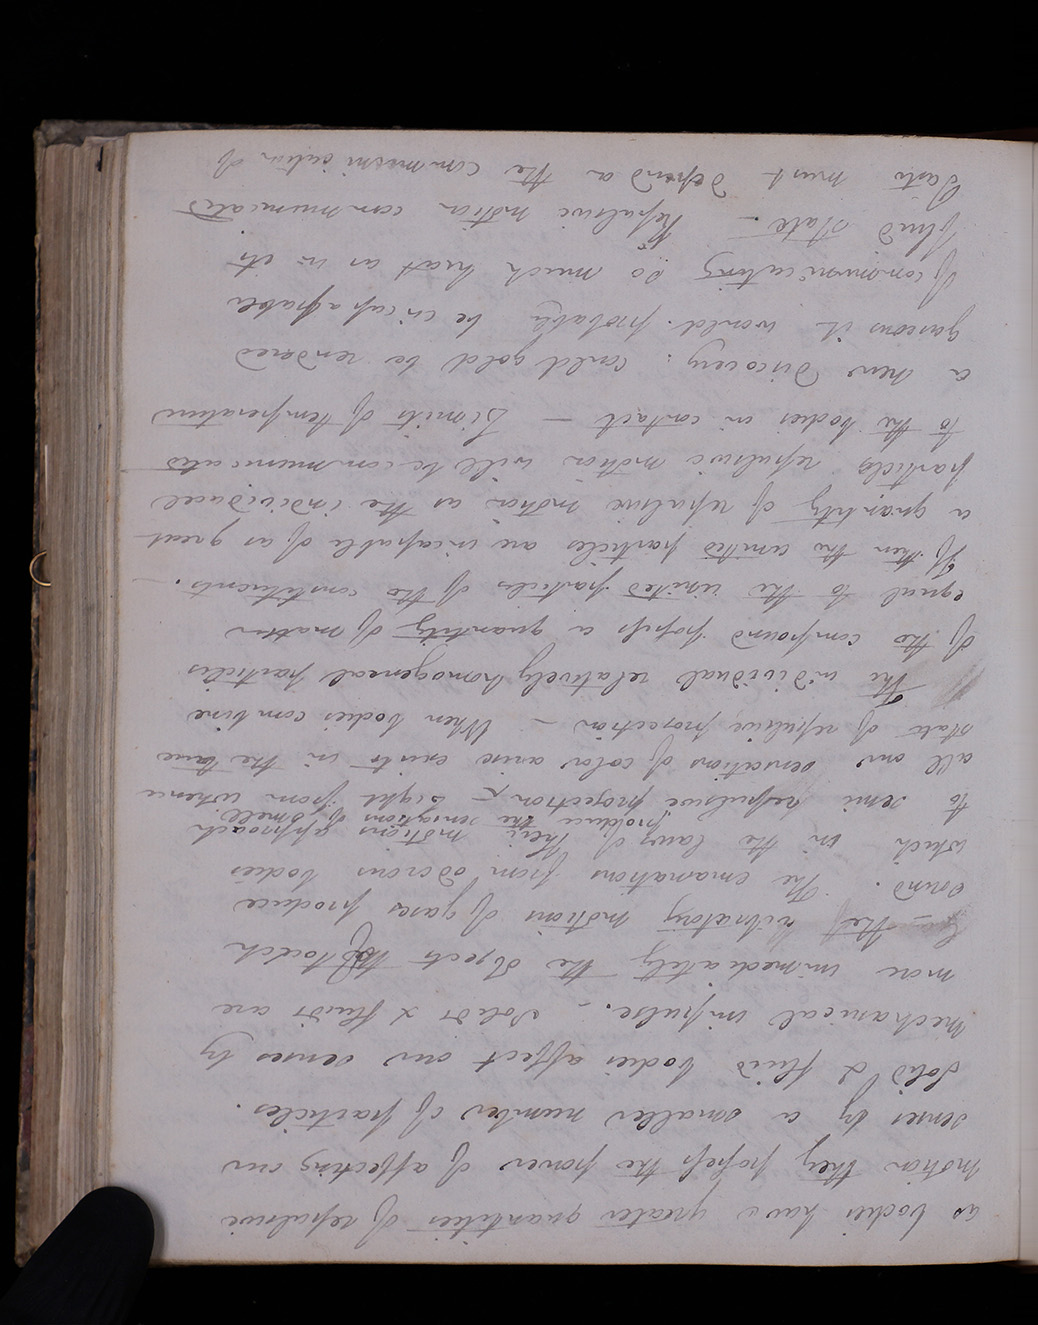 as bodies have greater quantities of repulsive
motion they possess the power of affecting our
senses by a smaller number of particles.
Solid & fluid bodies affect our senses by
mechanical impulse. - Solids & fluids are
more immediately the objects of touch
- the vibratory motions of gases produce
sound. The emanations from odorous bodies
which in the laws of their motions approach
produce the sensations of smell
to semi repulsive projection - Light from whence
all our sensations of color arise exists in the same
state of repulsive projection - When bodies combine
The individual relatively homogeneal particles
of the compound possess a quantity of matter
equal to the united particles of the constituents. -
If then the united particles are incapable of as great
a quantity of repulsive motion as the individual
particles repulsive motion will be communicated
to the bodies in contact - Limits of temperature
a new discovery: could gold be rendered
gaseous it would probably be incapapable
of communicating so much heat as in its
fluid state - Repulsive motion communicated
Taste must depend on the communication of